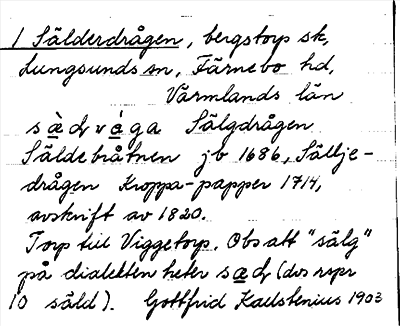 1 Sälderdrågen, bergstorp sk,
Lungsunds sn, Färnebo hd,
Värmlands län
Sälgdrågen
Säldebråtnen jb 1686, Sällje-
drågen Kroppa-papper 1714,
avskrift av 1820.
Torp till Viggetorp. Obs att "sälg"
på dialekten heter (dvs rspr
10 säld). Gottfrid Kallstenius 1903